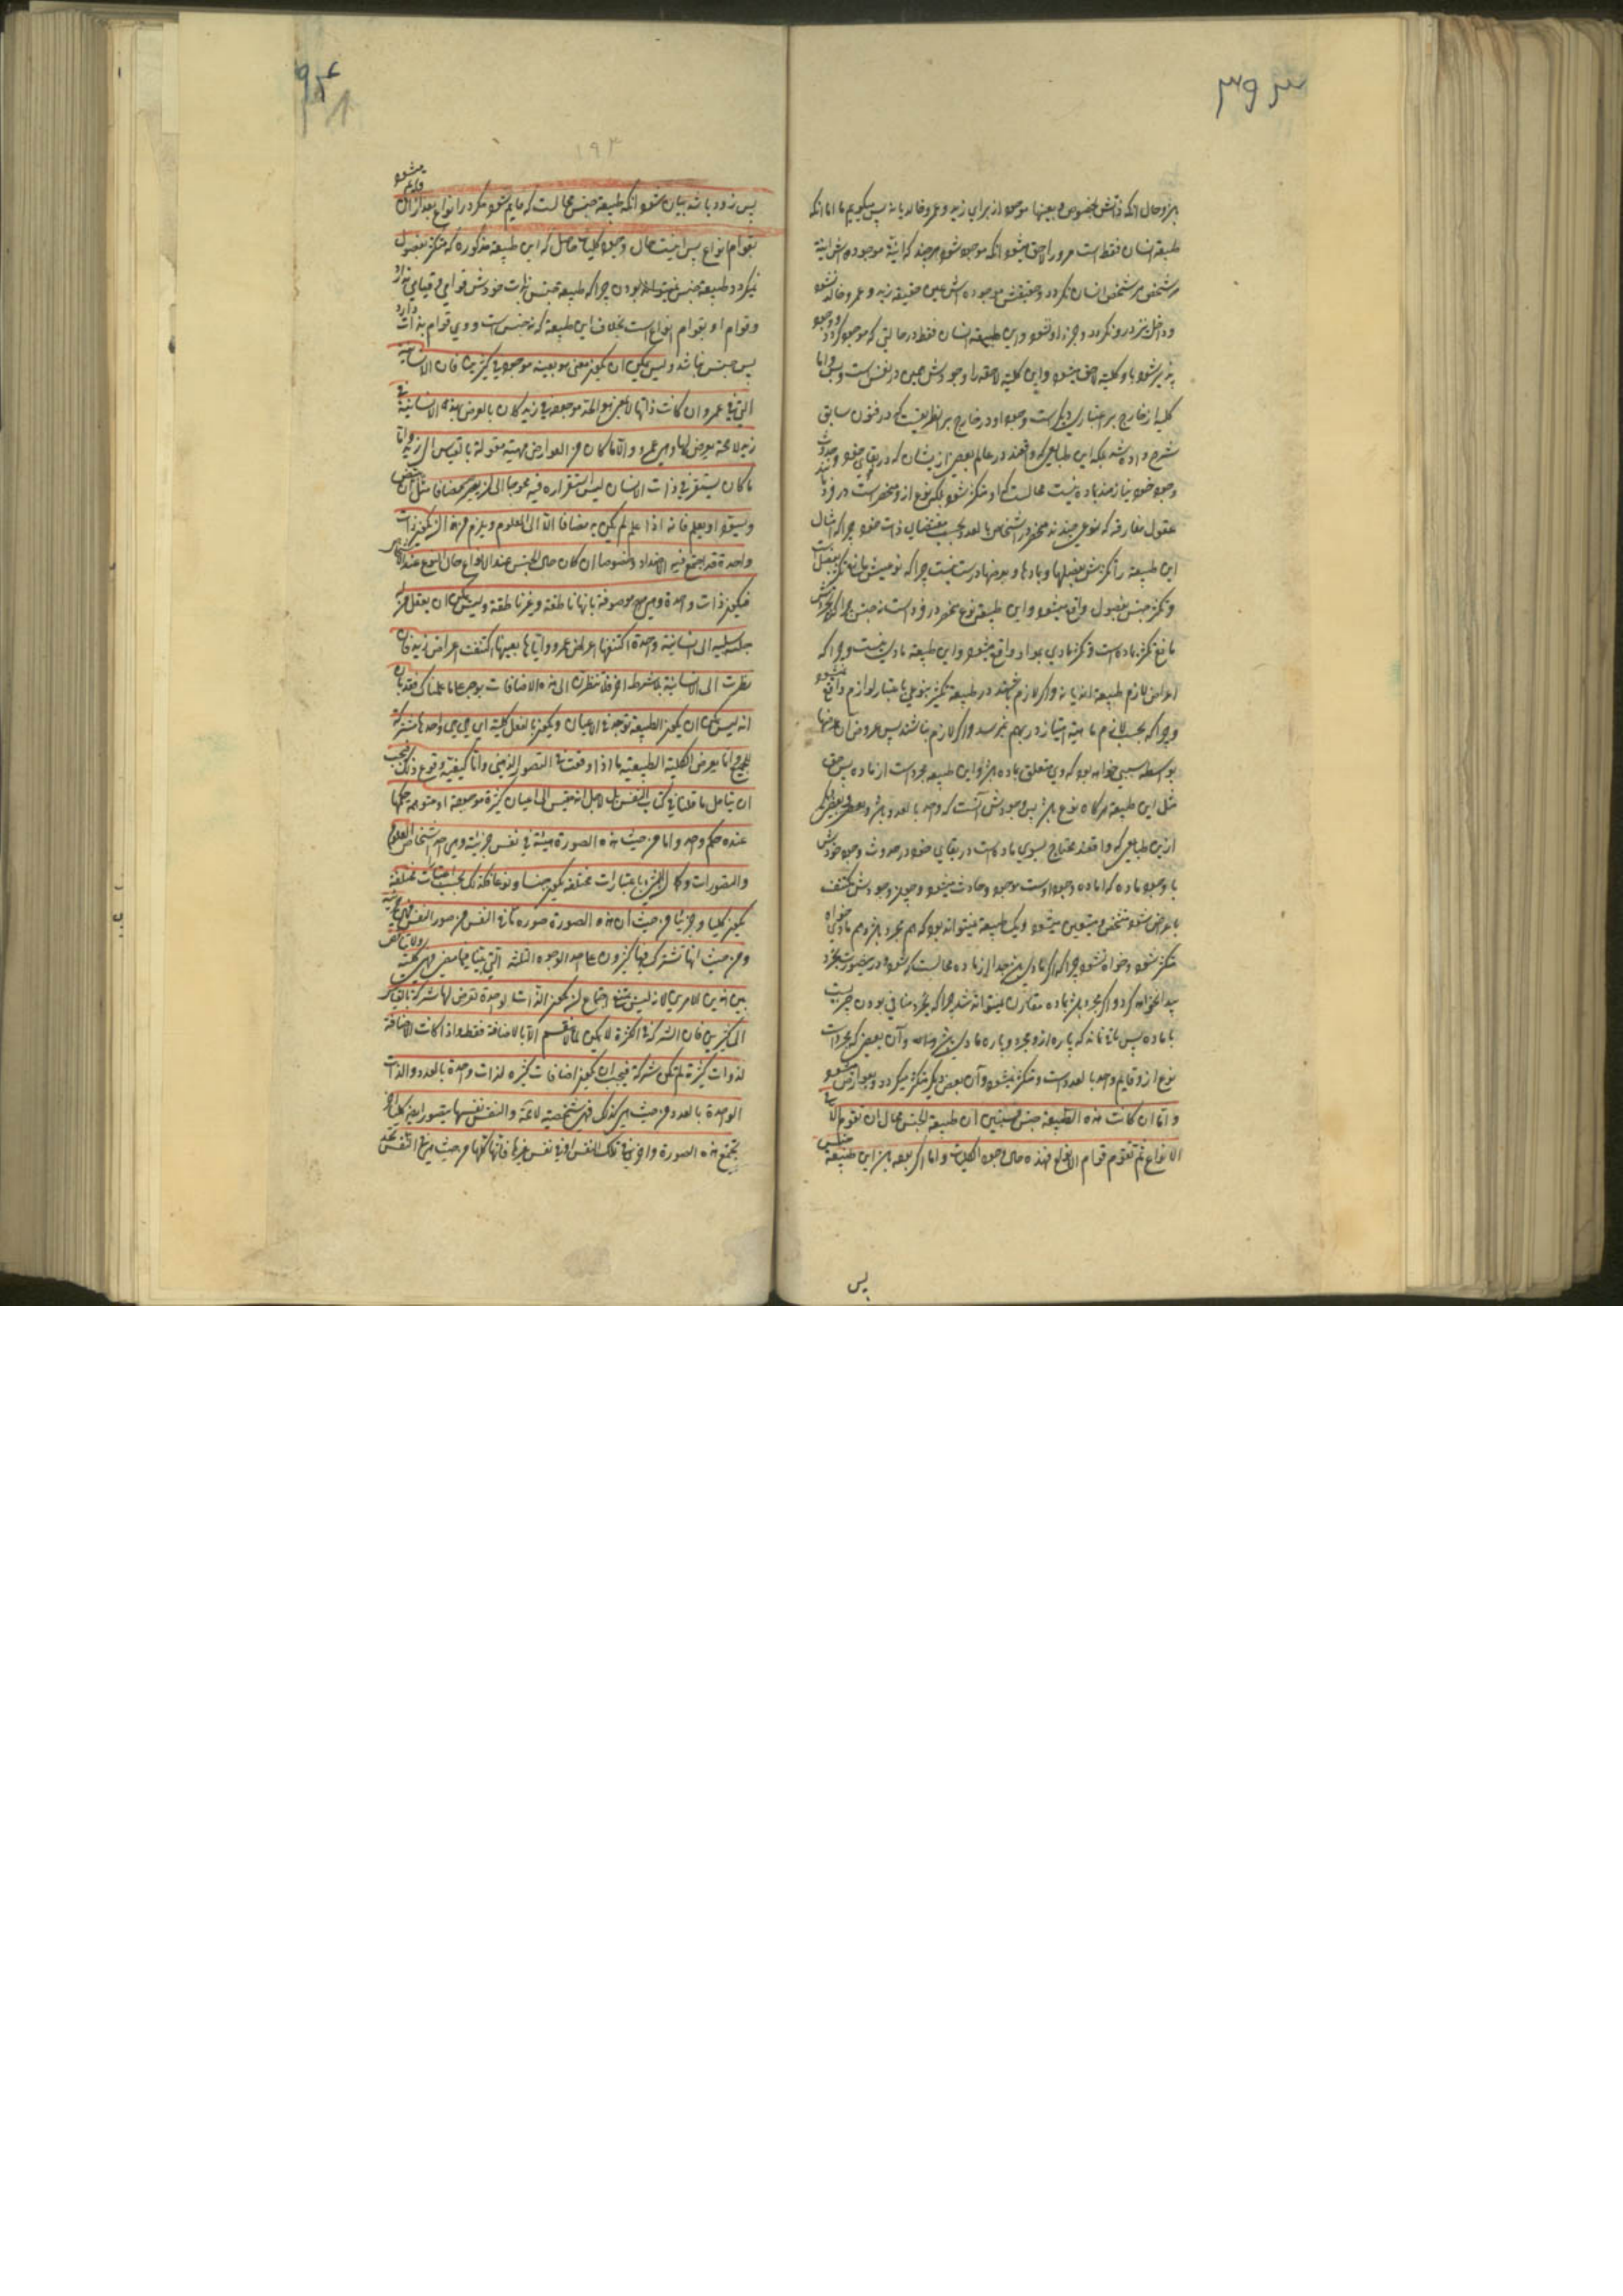 ۳۹۳
باز و حال انکه ذاتش بخصوص و بعینها موجود از برای زید و عمرو خالد یا نه پس میگوییم ما اما انکه
طبیعة انسان فقط است مر او را لاحق میشود انکه موجود شود هر چند که انیة موجوده اش انیة
هر شخص هر شخص انسان نکردد و حقیقتش موجوده اش عین حقیقه زید و عمرو خالد نشود
و داخل نیز درو نکردد و جزء او نشود و این طبیعة انسان فقط در حالتی که موجود کردد و وجود
پذیر شود با و کلیة لاحق میشود و این کلیة لاحقه را وجودش همین در نفس است و بس و اما
کلیة از خارج بر اعتباری دیکر است و وجود او در خارج بر نظریست که در فنون سابق
شرح داده شد بلکه این طبایعی که واقعند در عالم بعضی از ایشان که در بقای خود و حدوث
وجود خود نیازمند ماده نیست محالست که او متکثر شود بلکه نوع ازو منحصر است در فرد مانند
عقول مفارقه که نوعی چند نه منحصر در اشخاص بالعدد بحسب مقتضای ذات خود چرا که امثال
این طبیعة را تکثرش بفصلها و مادها و بعرضها درست نیست چرا که نوعیتش مانع تکثر بفصل است
و تکثر جنس بفصول واقع میشود و این طبیعة نوع منحصر در فرد است نه جنس چرا که تجردش
مانع تکثر بماده است و تکثر مادی بمواد واقع میشود و این طبیعة مادی نیست و چرا که
اعراض لازم طبیعة اند یا نه و اگر لازم باشند در طبیعة تکثر بنوعی باعتبار لوازم واقع نمیشود
و چرا که بحسب لازم ماهیة امتیاز در بهم نمیرسد و اگر لازم نباشند پس عروض آن عرضها
بواسطه سببی خواهد بود که وی متعلق بماده باشد و این طبیعه مجرد است از ماده پس حق
مثل این طبیعة هر گاه نوع باشد پس وجودش آنست که واحد بالعدد باشد و بعضی دیگر
از این طبایعی که واقعند محتاج بسوی ماده است در بقای خود در حدوث وجود خودش
با وجود ماده که اماده وجود اوست موجود و حادث میشود و چون وجودش مکتنف
باعراض شود مشخص و متعین میشود و یک طبیعة نمیتواند بود که هم مجرد باشد و هم مادی خواه
متکثر شود و خواه نشود چرا که اگر مادی باشد جدا از ماده محالست که شود و در خصوص تجرد
پیدا نخواهد کرد و اگر مجرد باشد بماده مقارن نمیتواند شد چرا که تجرد منافی بودن جزئیت
با ماده پس مانع نماند که پاره ازو مجرد و پاره مادی باشد و آن بعض که مجرد است
نوع از و قایم واحد بالعدد است و متکثر نمیشود و آن بعض دیگر متکثر میکردد و بعوارض میشود
و اما ان کانت هذه الطبیعة جنس فسنبین ان طبیعة الجنس محال ان تقوم لا فی
الانواع ثم تقوم قوام الانواع فهذه حال وجود الکلیات و اما اگر بوده باشد این طبیعة جنس
پس
۱۹۴
پس زود باشد بیان میشود انکه طبیعة جنس محالست که قایم شود مگر در انواع بعد از آن قایم میشود
بقوام انواع پس اینست حال وجود کلیات حاصل که این طبیعة مذکوره که متکثر بفصول
نمیکردد طبیعة جنس نمیتواند بودن چرا که طبیعة جنس بذات خودش قوامی و قیامی ندارد
و قوام او بقوام انواع است بخلاف این طبیعة که نه جنس است و وی قوام بذات دارد
پس جنس نباشد و لیس یمکن ان یکون معنی هو بعینه موجودا فی کثیرین فان الانسانیة
التی فی عمرو ان کانت ذاتها لا بمعنی هو الحد موجودة فی زید کان ما یعرض لهذه الانسانیة فی
زید لا محالة یعرض لها و هی فی عمرو الا ما کان من العوارض مهیته مقولة بالقیاس الی زید و اما
ما کان یستقر فی ذات الانسان لیس استقراره فیه محوجا الی ان یصیر مضافا مثل ان یبیض
و یسود او یعلم فانه اذا علم لم یکن به مضافا الا الی المعلوم و یلزم من هذا ان یکون ذات
واحدة قد اجتمع فیه الاضداد و خصوصا ان کان حال الجنس عند الانواع حال النوع عند الاشخاص
فیکون ذات واحدة هی موصوفة بانها ناطقة و غیر ناطقة و لیس یمکن ان یعقل من له
جبلة سلیمة ان انسانیة واحدة اکتنفتها اعراض عمرو و ایاها بعینها اکتنفت اعراض زید فان
نظرت الی الانسانیة بلا شرط اخر فلا تنظرن الی هذه الاضافات بوجه علی ما علمناک فقد بان
انه لیس یمکن ان یکون الطبیعة توجد فی الاعیان و یکون بالفعل کلیة ای هی وحدها مشترکة
للجمیع و انما یعرض الکلیة لطبیعة ما اذا وقعت فی التصور الذهنی و اما کیفیة وقوع ذلک فیجب
ان یتامل ما قلناه فی کتاب النفس لاجل انه مقیس الی اعیان کثیرة موجودة او متوهمة حکمها
عنده حکم واحد و اما من حیث هذه الصورة هیئة فی نفس جزئیة و هی احد اشخاص العلوم
و التصورات و کما ان الشئ باعتبارات مختلفة یکون جنسا و نوعا فکذلک بحسب اعتبارات مختلفة
یکون کلیا و جزئیا فمن حیث ان هذه الصورة صورة ما فی النفس من صور النفس فهی جزئیة
و من حیث انها تشترک فیها کثیرون علی احد الوجوه الثلثة التی بینا فیما مضی فهی کلیة و لا تناقض
بین هذین الامرین لانه لیس بممتنع اجتماع ان یکون الذات الواحدة تعرض لها شرکة بالاضافة
الی کثیرین فان الشرکة فی الکثرة لا یمکن الا بالاضافة فقط و اذا کانت الاضافة
لذوات کثیرة لم تکن شرکة فیجب ان یکون اضافات کثیرة لذات واحدة بالعدد و الذات
الواحدة بالعدد من حیث هی کذلک فهی شخصیة لا محالة و النفس نفسها یتصور ایضا کلیا اخر
یجمع هذه الصورة و اخری فی تلک النفس او فی نفس غیرها فانها کلها من حیث هی فی النفس تحد